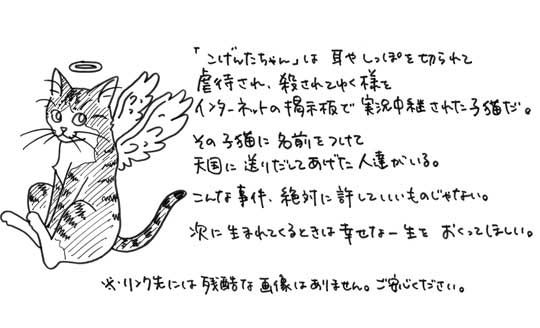 「こげんたちゃん」は 耳や しっぽを切られて
虐待され、殺されてゆく様を
インターネットの掲示板で実況中継された子猫だ。
その子猫に名前をつけて
天国に送りだしてあげた人達がいる。
こんな事件、絶対に許していいものじゃない。
次に生まれてくるときは幸せな一生を おくってほしい。
※・リンク先には残酷な画像はありません。ご安心ください。